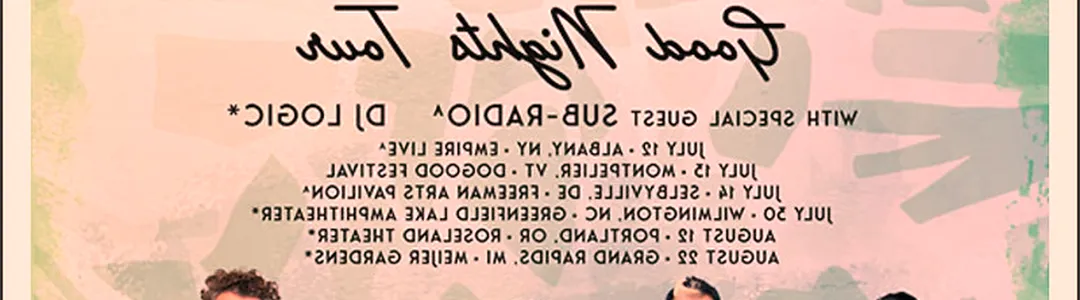 Good Nights Tour
WITH SPECIAL GUEST SUB-RADIO^ DJ LOGIC*
JULY 12 • ALBANY, NY • EMPIRE LIVE^
JULY 13 • MONTPELIER, VT • DOGOOD FESTIVAL
JULY 14 • SELBYVILLE, DE • FREEMAN ARTS PAVILION^
JULY 30 • WILMINGTON, NC • GREENFIELD LAKE AMPHITHEATER*
AUGUST 12 • PORTLAND, OR • ROSELAND THEATER*
AUGUST 22 • GRAND RAPIDS, MI • MEIJER GARDENS*